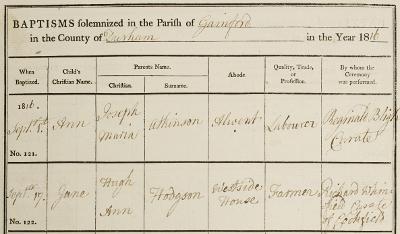 BAPTISMS solemnized in the Parish of Gainford
in the County of Durham in the Year 1816
When Baptized. Child's Christian Name. Parents Name. Abode. Quality, Trade, or Profession. By whom the Ceremony was performed.
Christian. Surname.
1816.
Septr. 1st. Ann Joseph Maria Atkinson Alwent Labourer Reginald Bligh Curate
No. 121.
Septr. 17. Jane Hugh Ann Hodgson Westside House Farmer Richard Curate of Cockfield
No. 122.